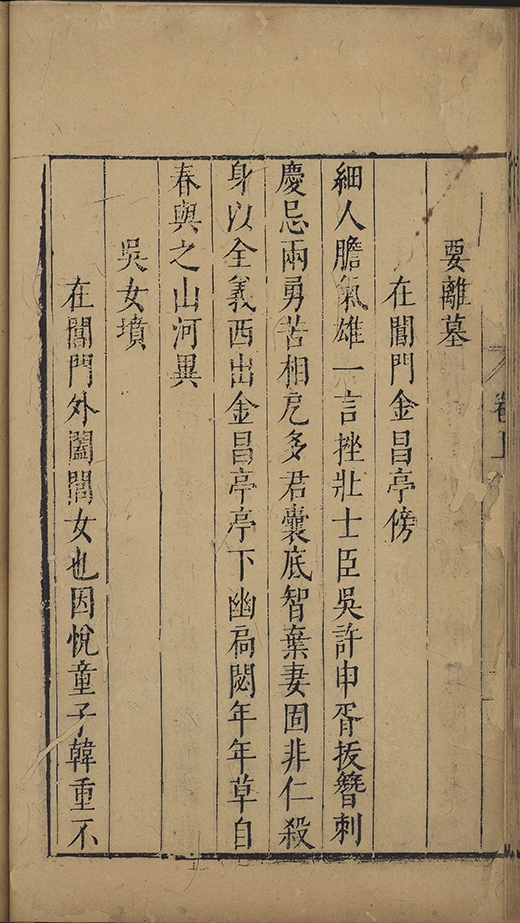 要離墓
在閶門金昌亭傍
細人膽氣雄一言挫壯士臣吳許申胥拔簪刺
慶忌兩勇苦相戹多君囊底智棄妻固非仁殺
身以全義西出金昌亭亭下幽扃閟年年草自
春與之山河異
吳女墳
在閶門外闔閭女也因悅童子韓重不